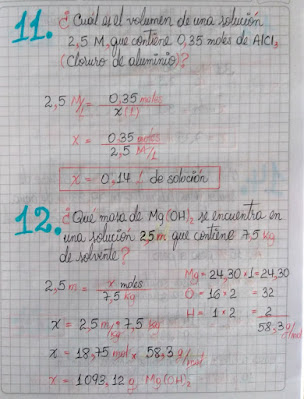 11. ¿Cuál es el volumen de una solución
2,5 M, que contiene 0,35 moles de AlCl3
(Cloruro de aluminio)?
2,5 M/1 = 0,35 moles / x (l)
x = 0,35 moles / 2,5 M/L
x = 0,14 l de solución
12. ¿Qué masa de Mg(OH)2 se encuentra en
una solución 2,5 m que contiene 7,5 kg
de solvente?
2,5 m = x moles / 7,5 kg
Mg = 24,30 * 1 = 24,30
O = 16 * 2 = 32
H = 1 * 2 = 2
58,3 g/mol
x = 2,5 m * 7,5 kg
x = 18,75 mol * 58,3 g/mol
x = 1093,12 g Mg(OH)2